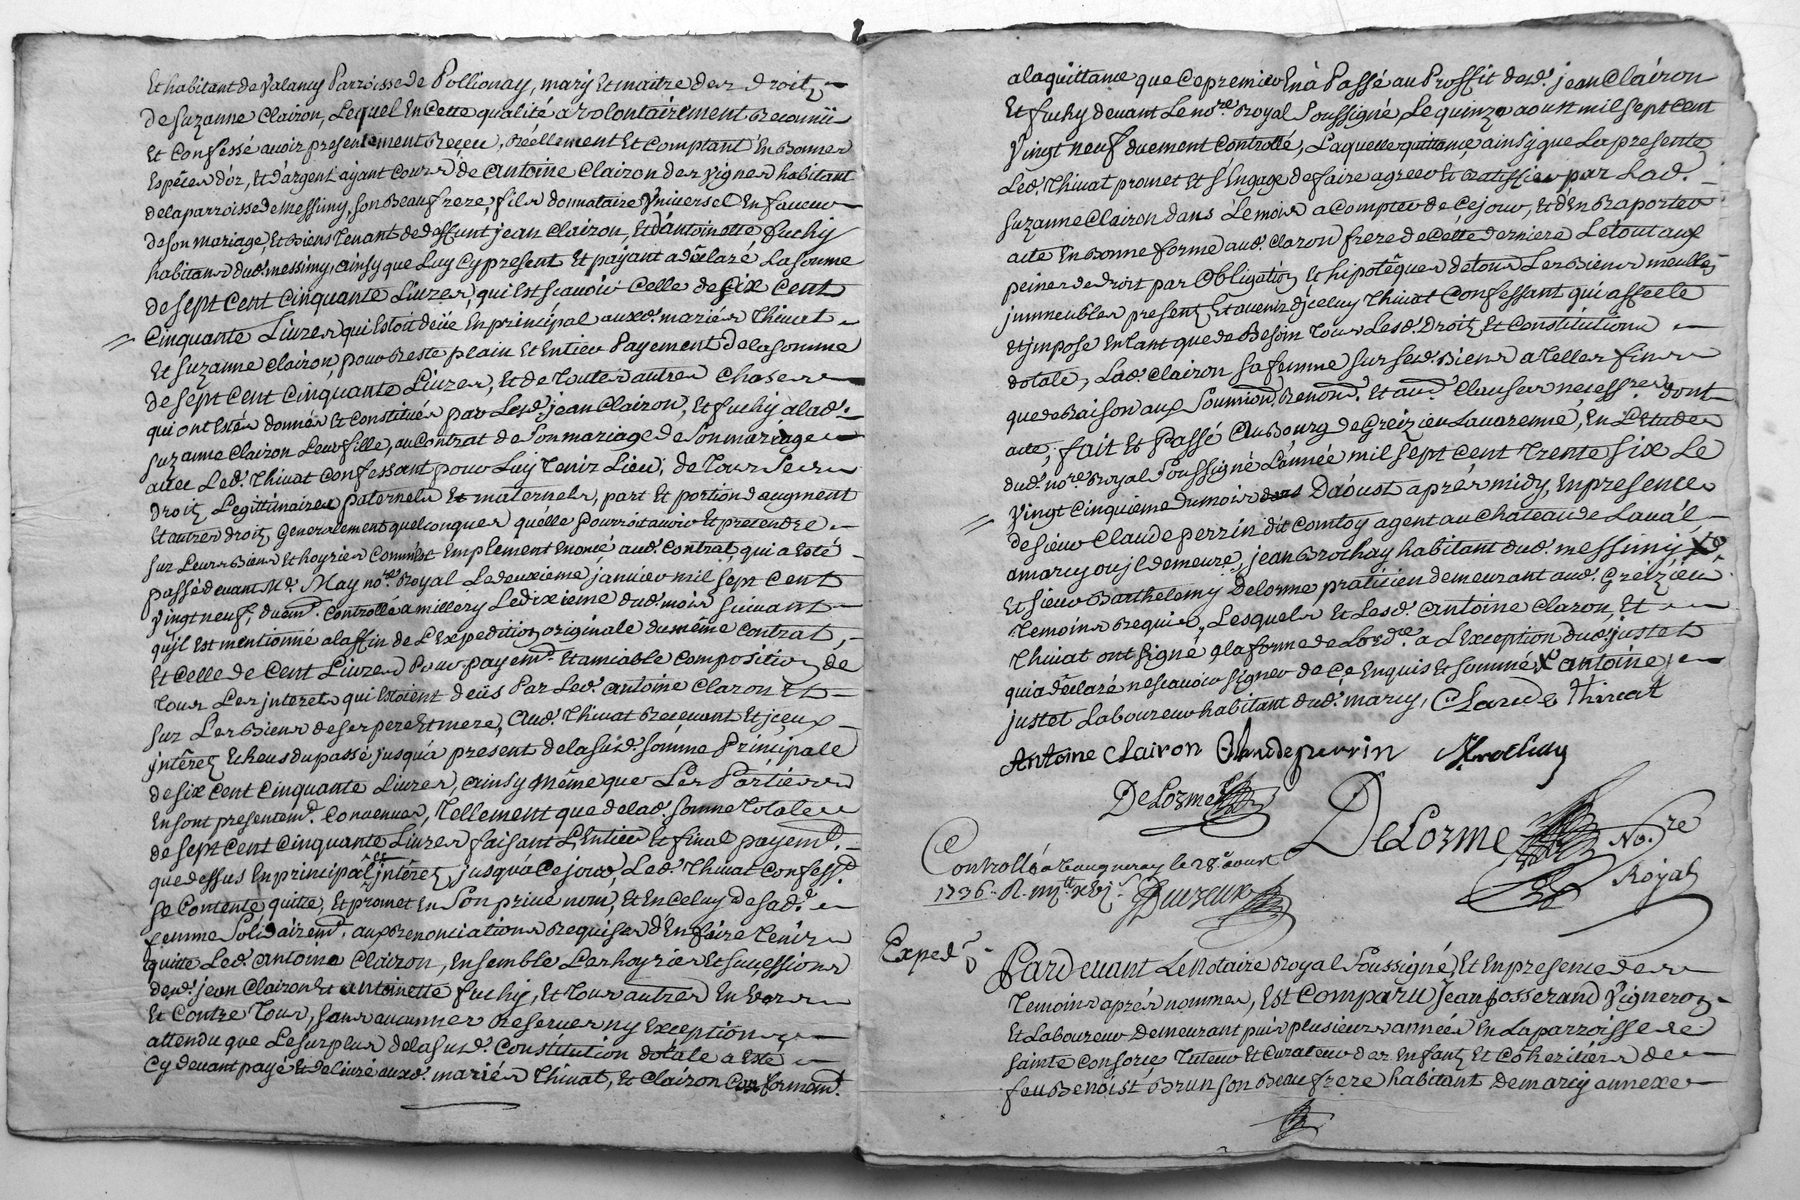 Et habitant de Valancy Parroisse de Pollionay, mary Et maitre des droitz
de Suzanne Clairon, Lequel En Cette qualité a volontairement Reconnü
Et Confessé avoir presentement Receu, Réellement Et Comptant En Bonnes
Espéces d'or, Et d'argent ayant Cours de Antoine Clairon des Vignes habitant
de la parroisse de Messimy, son Beaufrere, fils donnataire Vniversel En faveur
de son mariage, Et Biens Tenant de deffunt jean Clairon, Et d'antoinette fuchy
habitans dud. messimy, ainsy que Luy Cy present Et payant a déclaré La somme
de sept cent cinquante Livres, qui Est scavoir Celle de six cent
Cinquante Livres qui Estoit deüe En principal auxd. mariés Thivat
Et Suzanne Clairon, pour Reste plain Et Entier Payement de la somme
de sept cent cinquante Livres, Et de Toutes autres Choses
qui ont Estés donnés Et Constitués par Lesd. jean Clairon, Et fuchy a lad.
Suzanne Clairon Leur fille, au Contrat de Son mariage de Son mariage
avec Led. Thivat Confessant pour Luy Tenir Lieu, de Tous Ses
droitz Legitimaires paternels Et maternels, part Et portion d'augment
Et autres droitz Generalement quelconques qu'elle pourroit avoir Et pretendre
sur Leurs Biens Et hoyries Comme Est Emplement Enoncé aud. Contrat, qui a Esté
passé devant Me. May nore. Royal Le deuxieme janvier mil sept Cent
Vingt neuf, duemt. Controllé a millery Le dixieme dud. mois suivant
qu'jl Est mentionné a la fin de L'Expedition originale du même Contrat,
Et Celle de Cent Livres Pour payemt. Et amiable Composition de
Tous Les jnterets qui Estoient deüs Par Led. Antoine Claron Et
sur Les Biens de ses pere Et mere, Aud. Thivat Recevant Et jceux
jntêretz Echeus du passé jusqu'a present de la susd. somme Principale
de six Cent Cinquante Livres, ainsy même que Les Parties
En sont presentemt. Convenues, Tellement que de lad. somme Totale
de sept cent Cinquante Livres faisant L'Entier Et final payemt.
que dessus En principal Et jntêretz jusqu'a Ce jour, Led. Thivat Confesst.
se Contente quitte, Et promet En Son privé nom, Et En Celuy de sad.
femme Solidairemt. aux Renonciations Requises d'En faire Tenir
quitte Led. Antoine Clairon, Ensemble Les hoyries Et successions
desd. jean Clairon Et antoinette fuchy, Et Tous autres Envers
Et Contre Tous, sans aucunnes Reserves ny Exceptions
attendu que Le surplus de la susd. Constitution dotale a Esté
Cy devant payé Et delivré auxd. mariés Thivat, Et Clairon Conformemt.
a la quittance que Ce premier En a Passé au Proffit desd. jean Clairon
Et fuchy devant Le nore. Royal Soussigné, Le quinze aoust mil sept Cent
Vingt neuf duement Controllé, Laquelle quittance, ainsy que La presente
Led. Thivat promet Et s'Engage de faire agreer Et Ratiffier par Lad.
Suzanne Clairon dans Le mois a Compter de Ce jour, Et d'En Raporter
acte En Bonne forme aud. Claron frere de Cette derniere Le tout aux
peines de droit par Obligation Et hipotêques de tous Les Biens meubles
jmmeubles presentz Et avenir d'jceluy Thivat Confessant qui affecte
Et jmpose En tant que de Besoin Tous Lesd. Droitz Et Constitution
dotale, Lad. Clairon sa femme sur sesd. Biens a Telles fins
que de Raison aux Soumions. Renons. Et aues. Clauses necessres. dont
acte, fait Et Passé au Bourg de Greizieu Lavarenne, En L'Etude
dud. nore. Royal Soussigné L'année mil sept Cent Trente six Le
Vingt Cinquieme du mois D'aoust aprés midy, En presence
de sieur Claude perrin dit Comtoy agent au Chateau de Laval
a marcy ou jl demeure, jean Brochay habitant dud. messimy
Et sieur Barthelemy Delorme praticien demeurant aud. Greizieu
Temoins Requis, Lesquels Et Lesd. antoine Claron, Et
Thivat ont signé a la forme de Lordce. a L'Exception dud. justet
qui a déclaré ne scavoir signer de Ce Enquis Et sommé X antoine
justet Laboureur habitant dud. marcy, Claude thivat
Antoine Clairon Claude perrin Brochay
DeLorme
DeLorme No.re
Royal
Controllé a Vaugneray le 28e. aoust
1736. R.
Duvreux
Exped.
Pardevant Le Notaire Royal Soussigné, Et En presence des
Temoins aprés nommés, Est Comparu Jean Josserand Vigneron
Et Laboureur Demeurant puis plusieurs années En La parroisse de
sainte Consorce, Tuteur Et Curateur des Enfantz Et Coheritiers de
feu Benoist Brun son Beaufrere habitant de marcy annexe